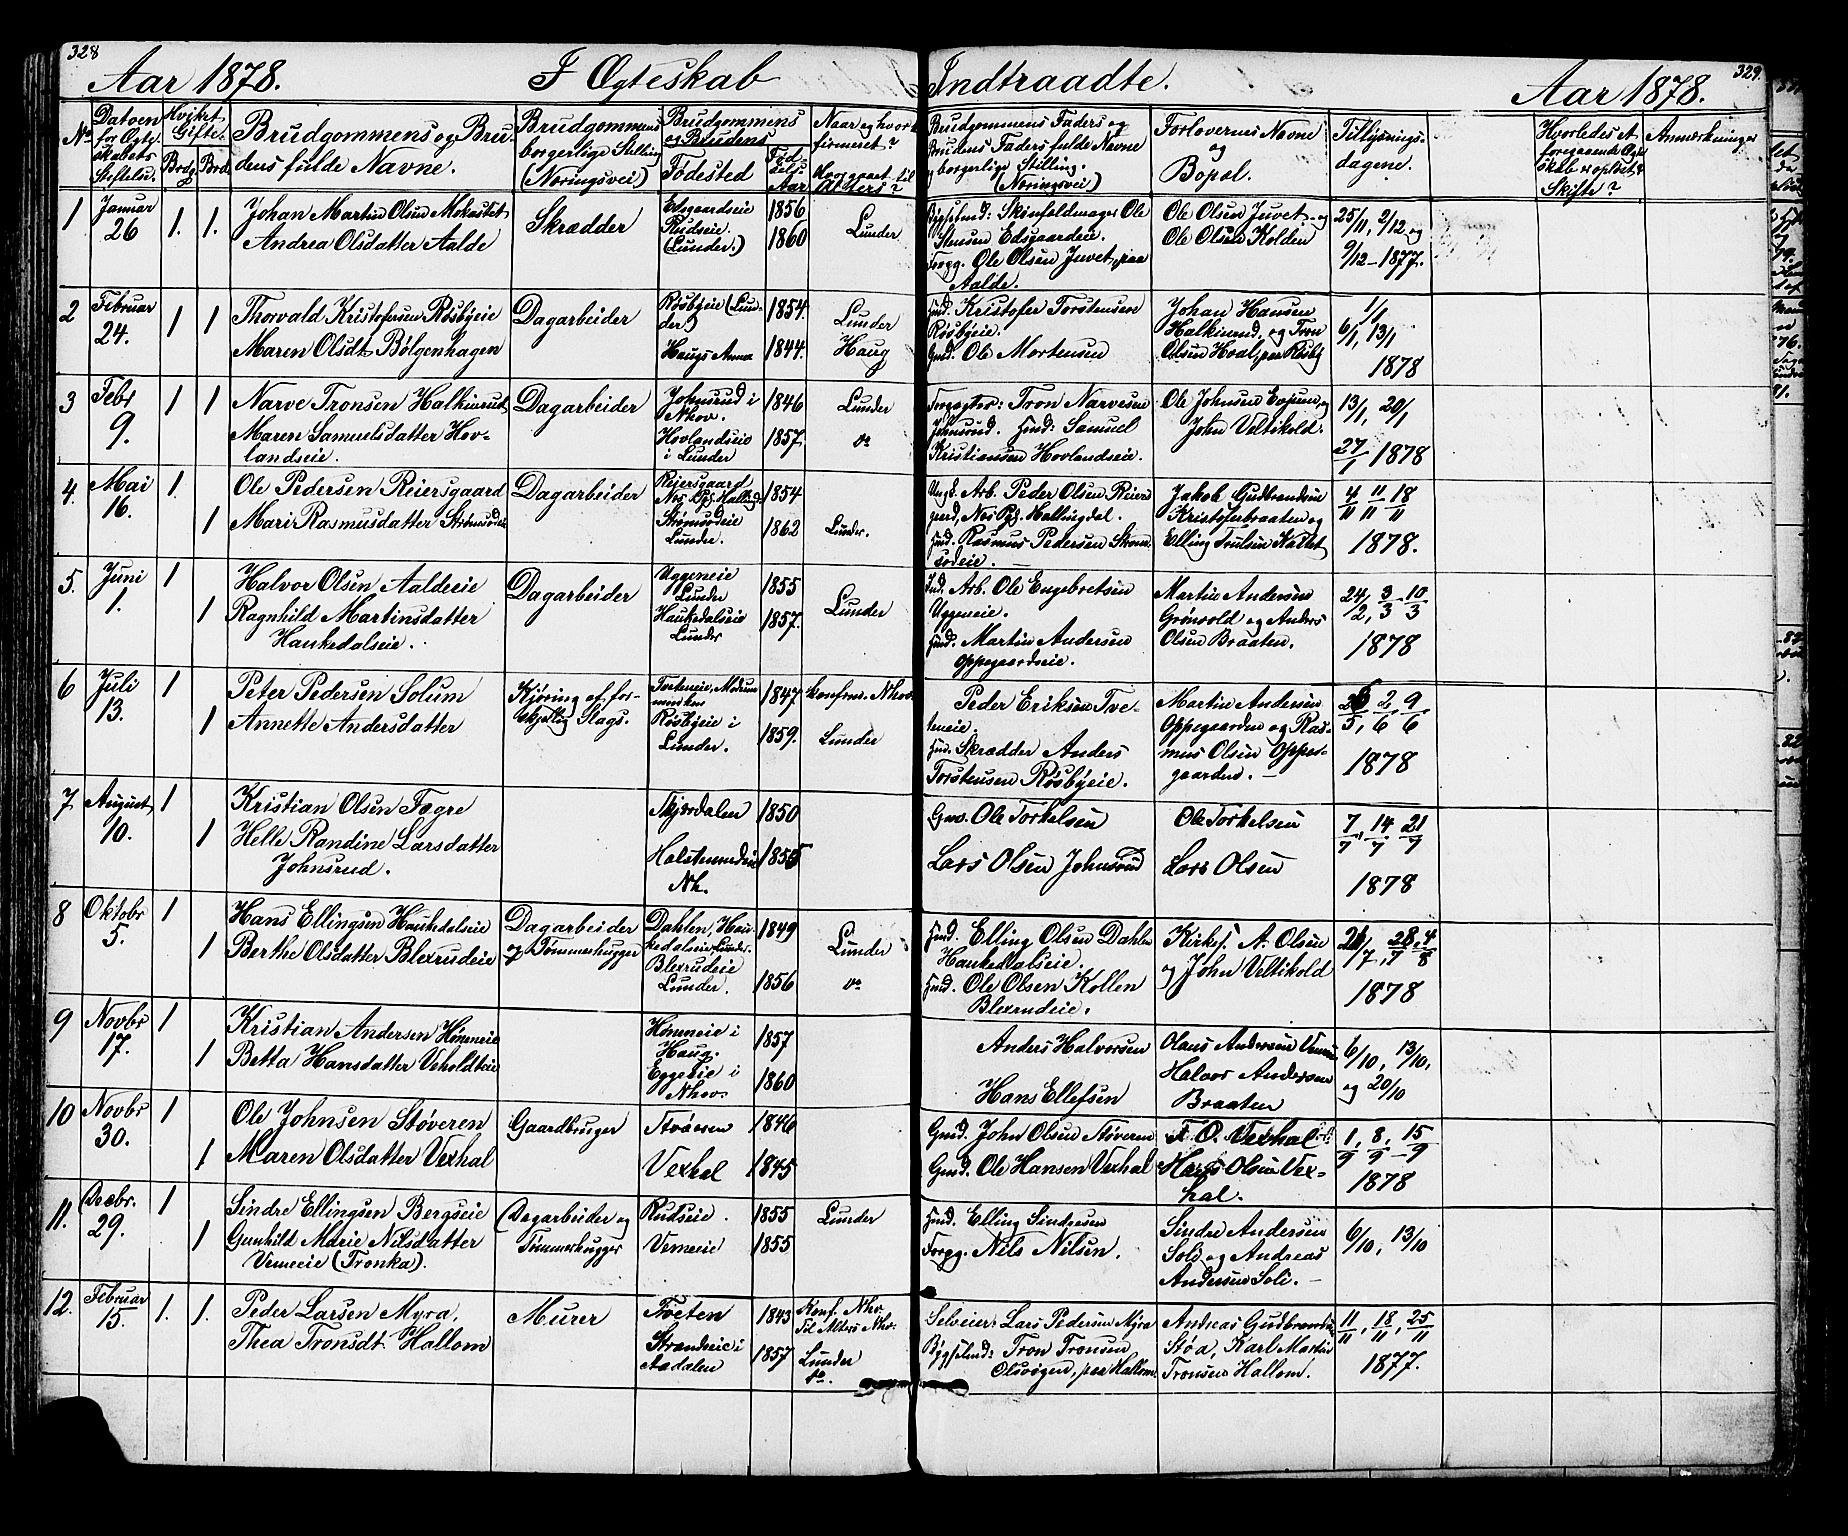 328
Aar 1878. I Ægteskab Indtraadte. Aar 1878. 329.
No
Datoen for Ægteskabets Stiftelse.
Hvilket Gifte.
Brdg. Brd.
Brudgommens og Brudens fulde Navne.
Brudgommens borgerlige Stilling (Næringsvei)
Brudgommens og Brudens
Fødested
Fødsels Aar
Naar og hvor
firmeret?
Hvor gaaet til Alters?
Brudgommens Faders og Brudens Faders fulde Navne og borgerlige Stilling. (Næringsvei)
Forlovernes Navne og Bopæl.
Tillysningsdagene.
Hvorledes et foregaaende Ægteskab er opløst? Skifte?
Anmærkninger
1 Januar 26 1. 1.
Johan Martin Olsen Mokastet
Andrea Olsdatter Aalde
Skrædder
Edsgaardseie
Rudseie.
(Lunder.)
1856
1860
Lunder
Bygselmd: Skinfeldmager Ole
Stensen Edsgaardeie.
Forpg. Ole Olsen Juvet, paa
Aalde.
Ole Olsen Juvet og
Ole Olsen Kolden
25/11, 2/12 og
9/12 - 1877.
2 Februar 24. 1 1
Thorvald Kristofersen Røsbyeie
Maren Olsdt. Bølgenhagen
Dagarbeider
Røsbyeie (Lunder)
Haugs Annex
1854.
1844.
Lunder
Haug
Hmd. Kristofer Torstensen
Røsbyeie.
Gmd. Ole Mortensen
Johan Hansen
Halkinrud, og Tron
Olsen Hval, paa Røsby
1/1
6/1, 13/1
1878
3 Febr 9. 1 1
Narve Tronsen Halkinrud
Maren Samuelsdatter Hovlandseie.
Dagarbeider
Johnsrud i
Nhov.
Hovlandseie
i Lunder
1846
1857.
Lunder
do
Forpagter: Tron Narvesen
Johnsrud. Hmd: Samuel
Kristiansen Hovlandseie.
Ole Johnsen Evjum og
John Veltikold.
13/1, 20/1
27/1 1878
4. Mai 16. 1. 1
Ole Pedersen Reiersgaard
Mari Rasmusdatter Strømsødeie
Dagarbeider
Reiersgaard
Nes Pgj. Hallingd.
Strømsødeie
Lunder.
1854
1862
Lunder.
Ungk. Arb. Peder Olsen Reiersgaard, Nes Pgj. Hallingdal.
Hmd. Rasmus Pedersen Strømsødeie.
Jakob Gudbrandsen
Kristoferbraaten og
Elling Trulsen
4/11 11/11 18/11
1878.
5. Juni 1. 1 1
Halvor Olsen Aaldeeie
Ragnhild Martinsdatter
Haukedalseie.
Dagarbeider
Uggeneie
Lunder
Haukedalseie
Lunder
1855
1857.
Lunder
Ind. Arb. Ole Engebretsen
Uggeneie.
Hmd. Martin Andersen
Oppegaardseie.
Martin Andersen
Grønvold og Anders
Olsen Braaten.
24/2, 3/3 - 10/3
1878
6 Juli 13. 1 1
Peter Pedersen Solum
Annette Andersdatter
Kjøring af forskjellig Slags.
Tveteneie, Modum
Røsbyeie i
Lunder.
1847
1859.
konfrm. Nhov.
Lunder
Peder Eriksen Tveteneie.
Hmd. Skrædder Anders
Torstensen Røsbyeie.
Martin Andersen
Oppegaarden og Rasmus Olsen Oppegaarden. —
26/5, 2/6 9/6
1878
7 August 10. 1 1
Kristian Olsen Fagre
Helle Randine Larsdatter
Johnsrud.
Skjærdalen
Halstenrudeie
Nh.
1850
1855
Gmd. Ole Torkelsen
Lars Olsen Johnsrud
Ole Torkelsen
Lars Olsen
7/7, 14/7 21/9
1878
8 Oktobr 5. 1 1
Hans Ellingsen Haukedalseie
Berthe Olsdatter Blexrudeie
Dagarbeider
og Tømmerhugger
Dahlen, Haukedalseie Lunder.
Blexrudeie
Lunder.
1849
1856
Lunder
do
Hmd. Elling Olsen Dahlen
Haukedalseie.
Hmd. Ole Olsen Kollen
Blexrudeie.
Kirkes. A. Olsen
og John Veltikold
21/7, 28/7, 4/8
1878
9 Novbr 17. 1 1
Kristian Andersen Hønneeie
Betta Hansdatter Veholdteie
Hønneeie i
Haug.
Eggeeie i
Nhov.
1857
1860
Anders Halvorsen
Hans Ellefsen
Olaus Andersen
Halvor Andersen
Braaten
6/10, 13/10,
og 20/10
10 Novbr 30. 1 1
Ole Johnsen Støveren
Maren Olsdatter Vexhal
Gaardbruger
Støveren
Vexhal
1846
1845
Gmd. John Olsen Støveren
Gmd. Ole Hansen Vexhal
T. O. Vexhal
Hans Olsen Vexhal.
1/9, 8/9 - 15/9
1878
11. Decbr. 29. 1 1
Sindre Ellingsen Bergseie
Gunhild Marie Nilsdatter
Vemeeie (Tronka).
Dagarbeider og
Tømmerhugger
Rudseie.
Vemeeie
1855
1855
Lunder
Hmd. Elling Sindresen
Forpg. Nils Nilsen.
Sindre Andersen
Soli og Andreas
Andersen Soli. —
6/10, 13/10
12. Februar 15. 1. 1.
Peder Larsen Myra.
Thea Tronsdt. Hallom
Murer
Tveten
Strandeie i
Aadalen
1843
1857
Konf. Nhov.
Til Alters Nhov.
Lunder
do.
Selveier: Lars Pedersen Myra
Bygselmd: Tron Tronsen
Olsvogen, paa Hallom.
Andreas Gudbrandsen
Støa, Karl Martin
Tronsen Hallom.
11/11, 18/11, 25/11
1877.